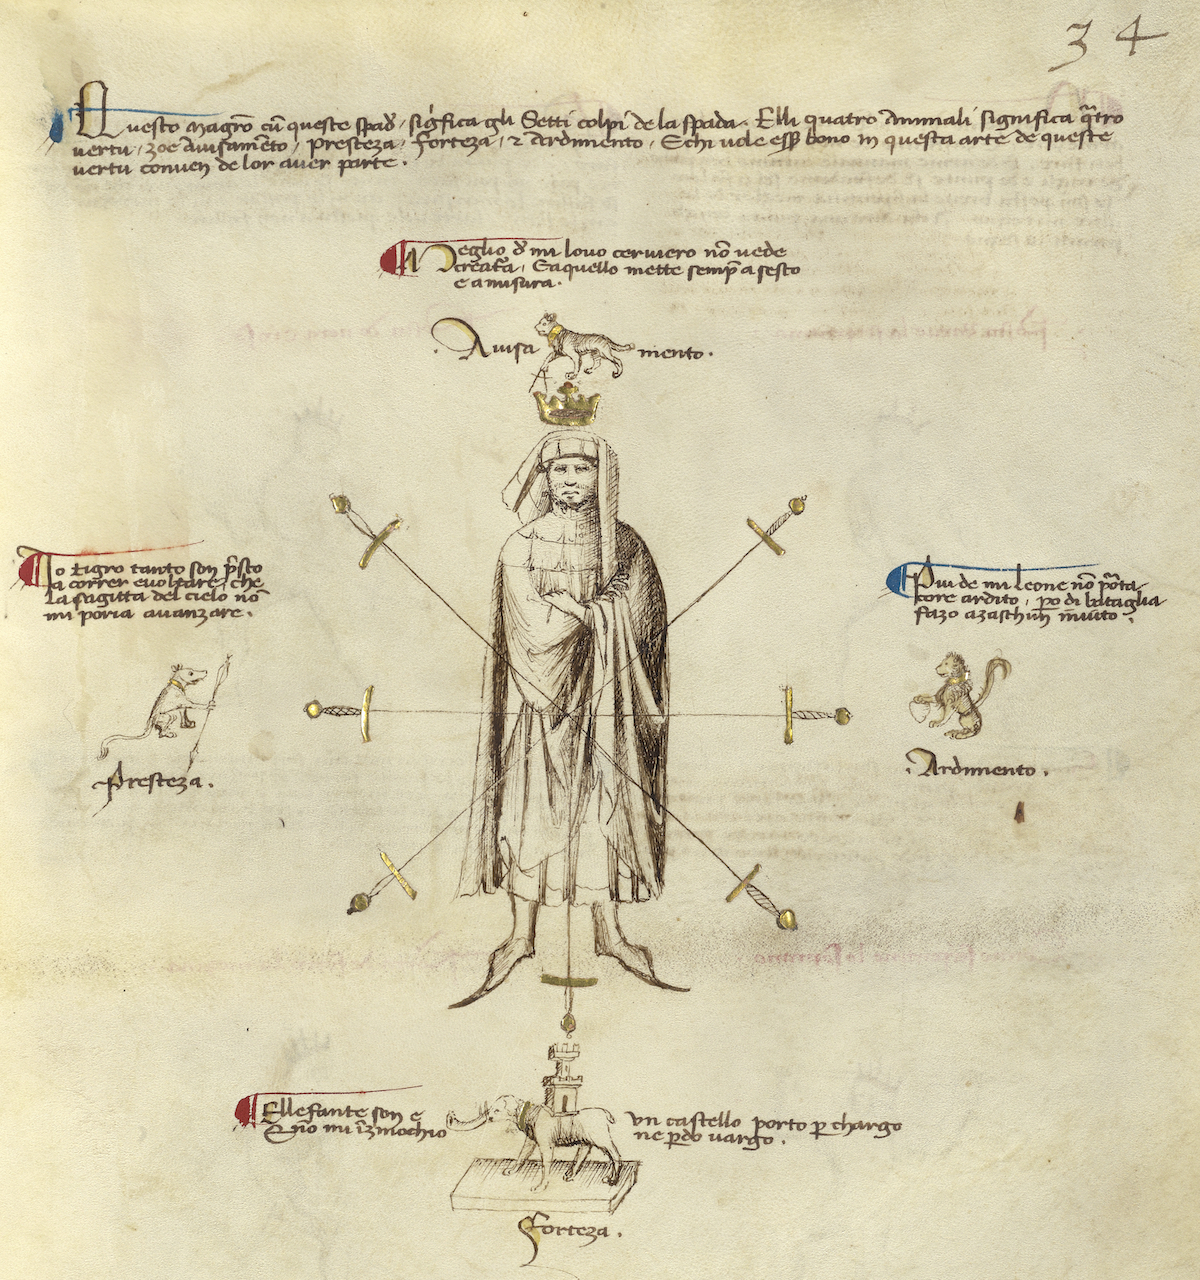 34
Questo Magro cu queste spade sigfica gli Setti colpi de la spada. Elli quatro Animali significa qtro
vertu, zoe avisamento, presteza, forteza, 2 Ardimento, E chi vole ess bono in questa arte de queste
vertu conven de lor aver parte.
Meglio de mi lovo cerviero no vede
creatura, E aquello mette semp a sesto
e a misura.
Avisamento.
Io tigro tanto son psto
a correr e voltare, che
La sagitta del cielo no
mi poria avanzare.
Piu de mi Leone no porta
core ardito, po di bataglia
fazo azaschun invito.
Presteza.
Ardimento.
Ellefante son e un castello porto p chargo
E no mi inzinochio ne pdo vargo.
Forteza.